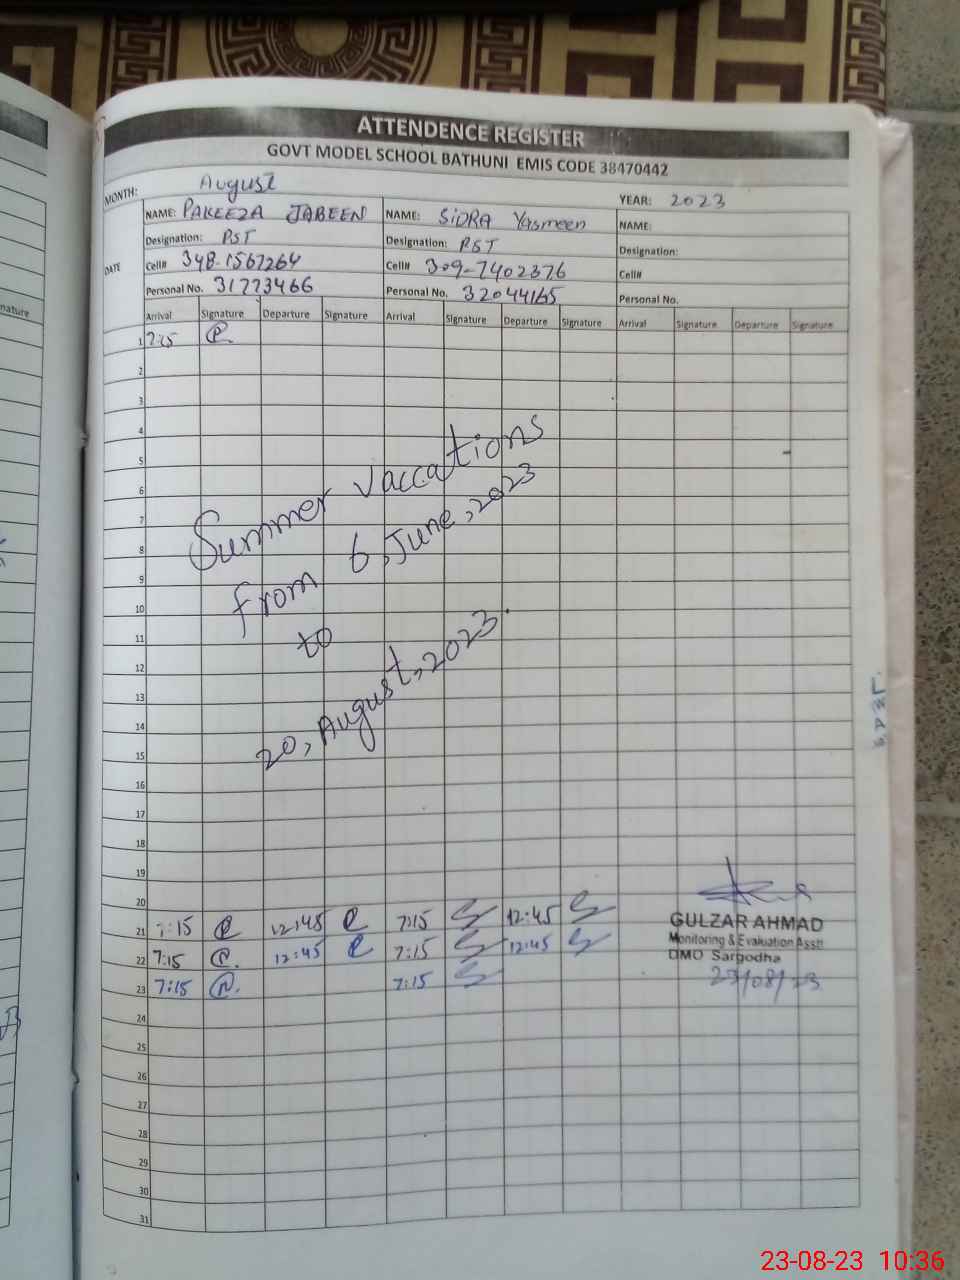 ATTENDENCE REGISTER
GOVT MODEL SCHOOL BATHUNI EMIS CODE 38470442
MONTH: August YEAR: 2023
NAME: PAKEEZA JABEEN NAME: SIDRA Yasmeen NAME:
Designation: PST Designation: PST Designation:
DATE Cell# 348-1567264 Cell# 309-7402376 Cell#
Personal No. 31773466 Personal No. 32044165 Personal No.
Arrival Signature Departure Signature Arrival Signature Departure Signature Arrival Signature Departure Signature
1 7:15
2
3
4
5
6
7
8
9
10
11
12
13
14
15
16
17
18
19
20
Summer vaccations
from 6, June, 2023
to
20, August, 2023.
21 7:15 12:45 7:15 12:45
22 7:15 12:45 7:15 12:45
23 7:15 7:15
24
25
26
27
28
29
30
31
GULZAR AHMAD
Monitoring & Evaluation Asstt
DMO Sargodha
23/08/23
nature
23-08-23 10:36